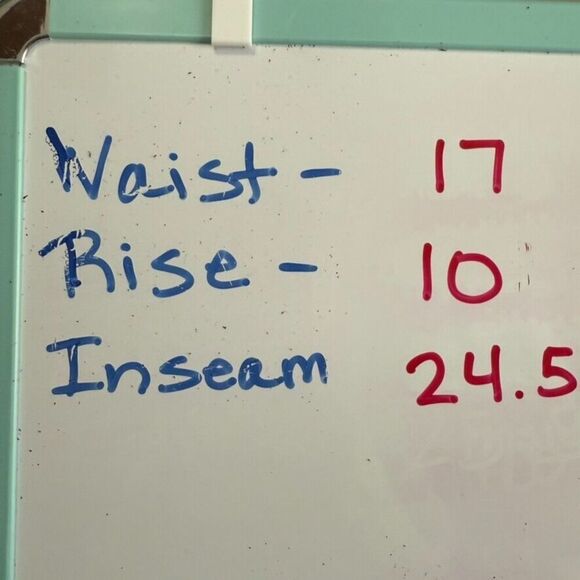 Waist - 17
Rise - 10
Inseam 24.5